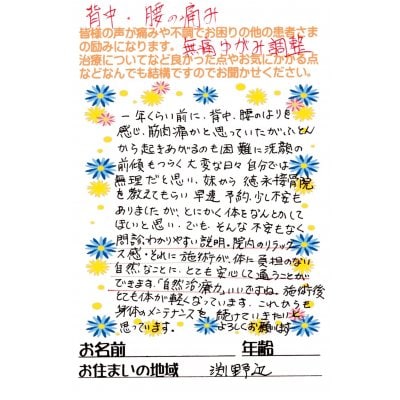 背中・腰の痛み
皆様の声が痛みや不調でお困りの他の患者さま
の励みになります。無痛ゆがみ調整
治療についてなど良かった点やお気にかかる点
などなんでも結構ですのでお聞かせください。
一年くらい前に、背中、腰のはりを
感じ、筋肉痛かと思っていたが、ふとん
から起きあがるのも困難に洗顔の
前傾もつらく大変な日々自分では
無理だと思い、妹から徳永接骨院
を教えてもらい早速予約、少し不安も
ありましたが、とにかく体をなんとかして
ほしいと思い、でも、そんな不安もなく
問診わかりやすい説明、院内のリラック
ス感、それに施術が、体に負担のない
自然なことに、とても安心して通うことが
できます。「自然治療力」いいですね。施術後
とても体が軽くなっています。これからも
身体のメンテナンスを続けていきたいと
思っています。よろしくお願いします
お名前 年齢
お住まいの地域 淵野辺